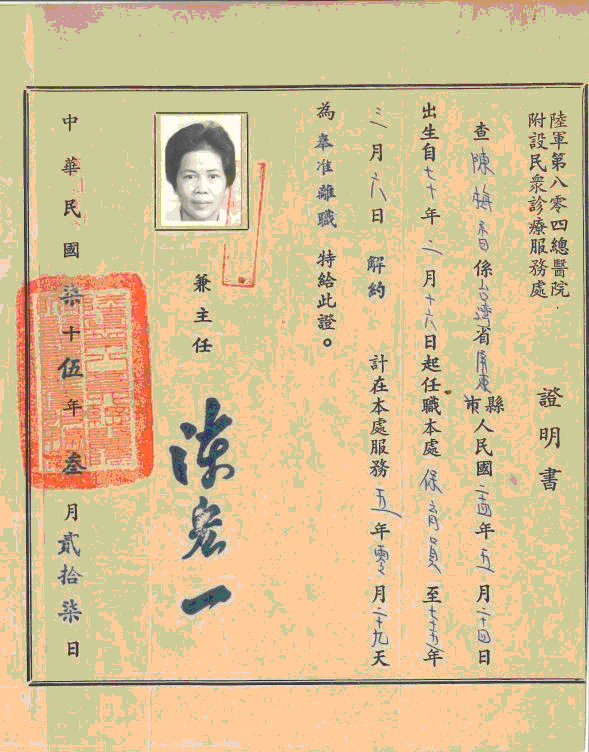 陸軍第八零四總醫院
附設民眾診療服務處
證明書
查陳梅香係台灣省屏東縣市人民國二十四年五月二十四日
出生自七十年二月十六日起任職本處保育員至七十五年
三月六日解約計在本處服務五年零月二十九天
為奉准離職特給此證。
兼主任
陳宏一
中華民國柒十伍年叁月貳拾柒日